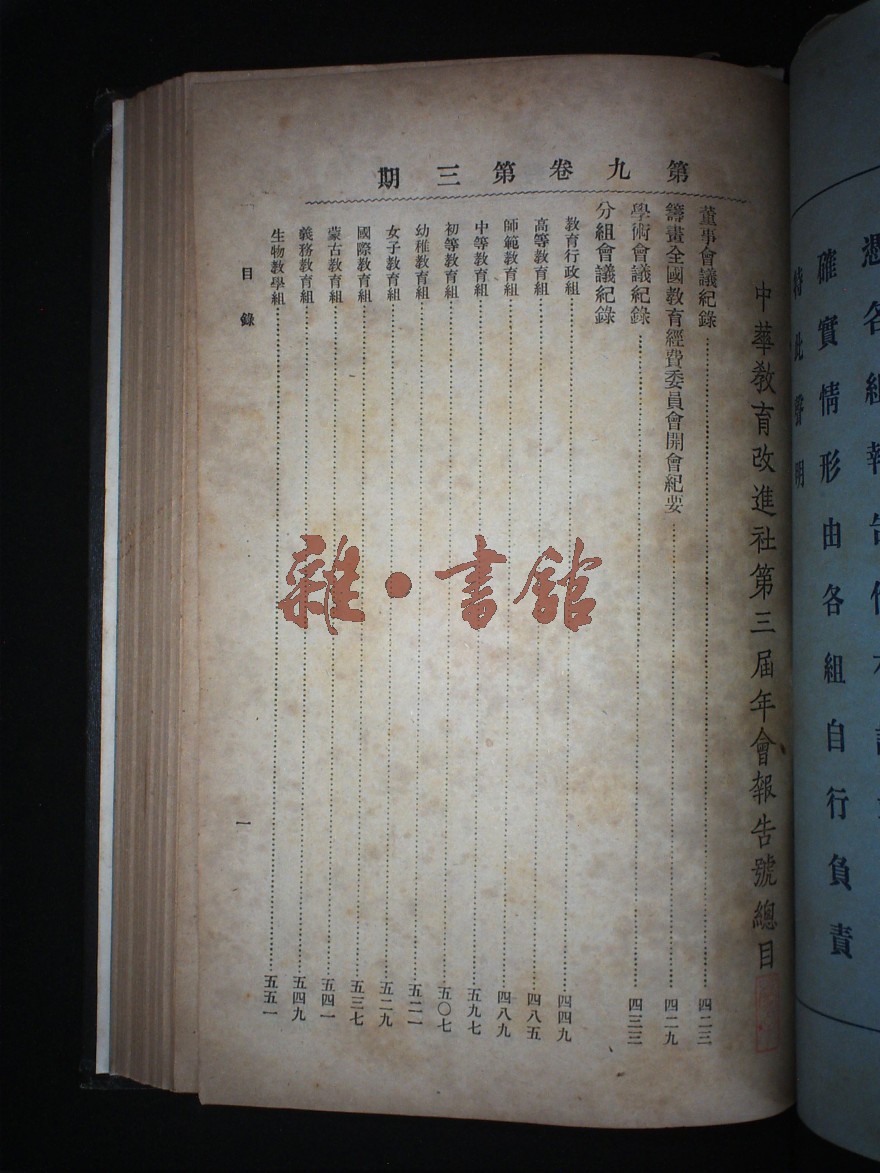 確實情形由各組自行負責
特此聲明
第九卷第三期
中華教育改進社第三屆年會報告號總目
董事會議紀錄……四二三
籌畫全國教育經費委員會開會紀要……四二九
學術會議紀錄……四三三
分組會議紀錄
教育行政組……四四九
高等教育組……四八五
師範教育組……四八九
中等教育組……五九七
初等教育組……五〇七
幼稚教育組……五二一
女子教育組……五二九
國際教育組……五三七
蒙古教育組……五四一
義務教育組……五四九
生物教學組……五五一
目錄
一
雜·書館